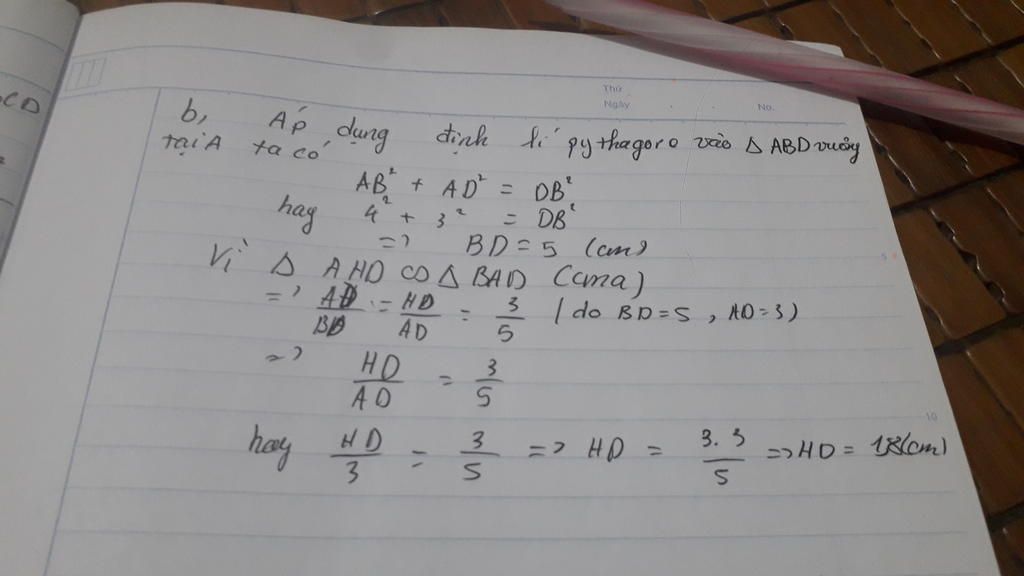 CD
Thứ
Ngày
No.
b, Áp dụng định lí pythagoro vào Δ ABD vuông
tại A ta có
AB² + AD² = DB²
hay 4² + 3² = DB²
=> BD = 5 (cm)
Vì Δ AHD ∽ Δ BAD (cma)
=> AD/BD = HD/AD = 3/5 (do BD = 5, AD = 3)
=> HD/AD = 3/5
hay HD/3 = 3/5 => HD = 3.3/5 => HD = 1,8(cm)
5
10